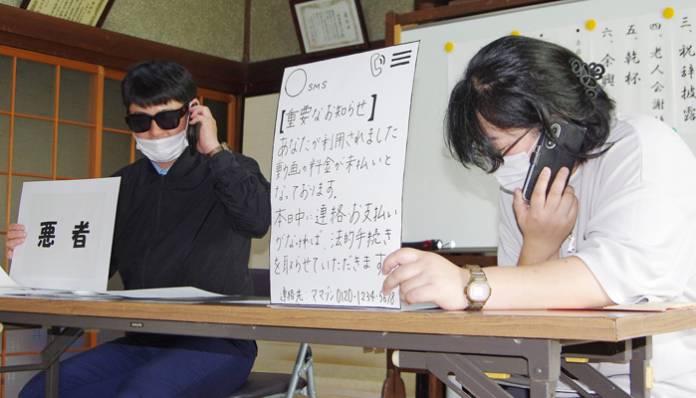 悪者
SMS
【重要なお知らせ】
あなたが利用されました
動画の料金が未払いと
なっております。
本日中に連絡・お支払い
がなければ、法的手続き
を取らせていただきます
連絡先 ママゾン 0120-1234-5678
三、祝辞披露
四、老人会謝
五、乾杯
六、余興